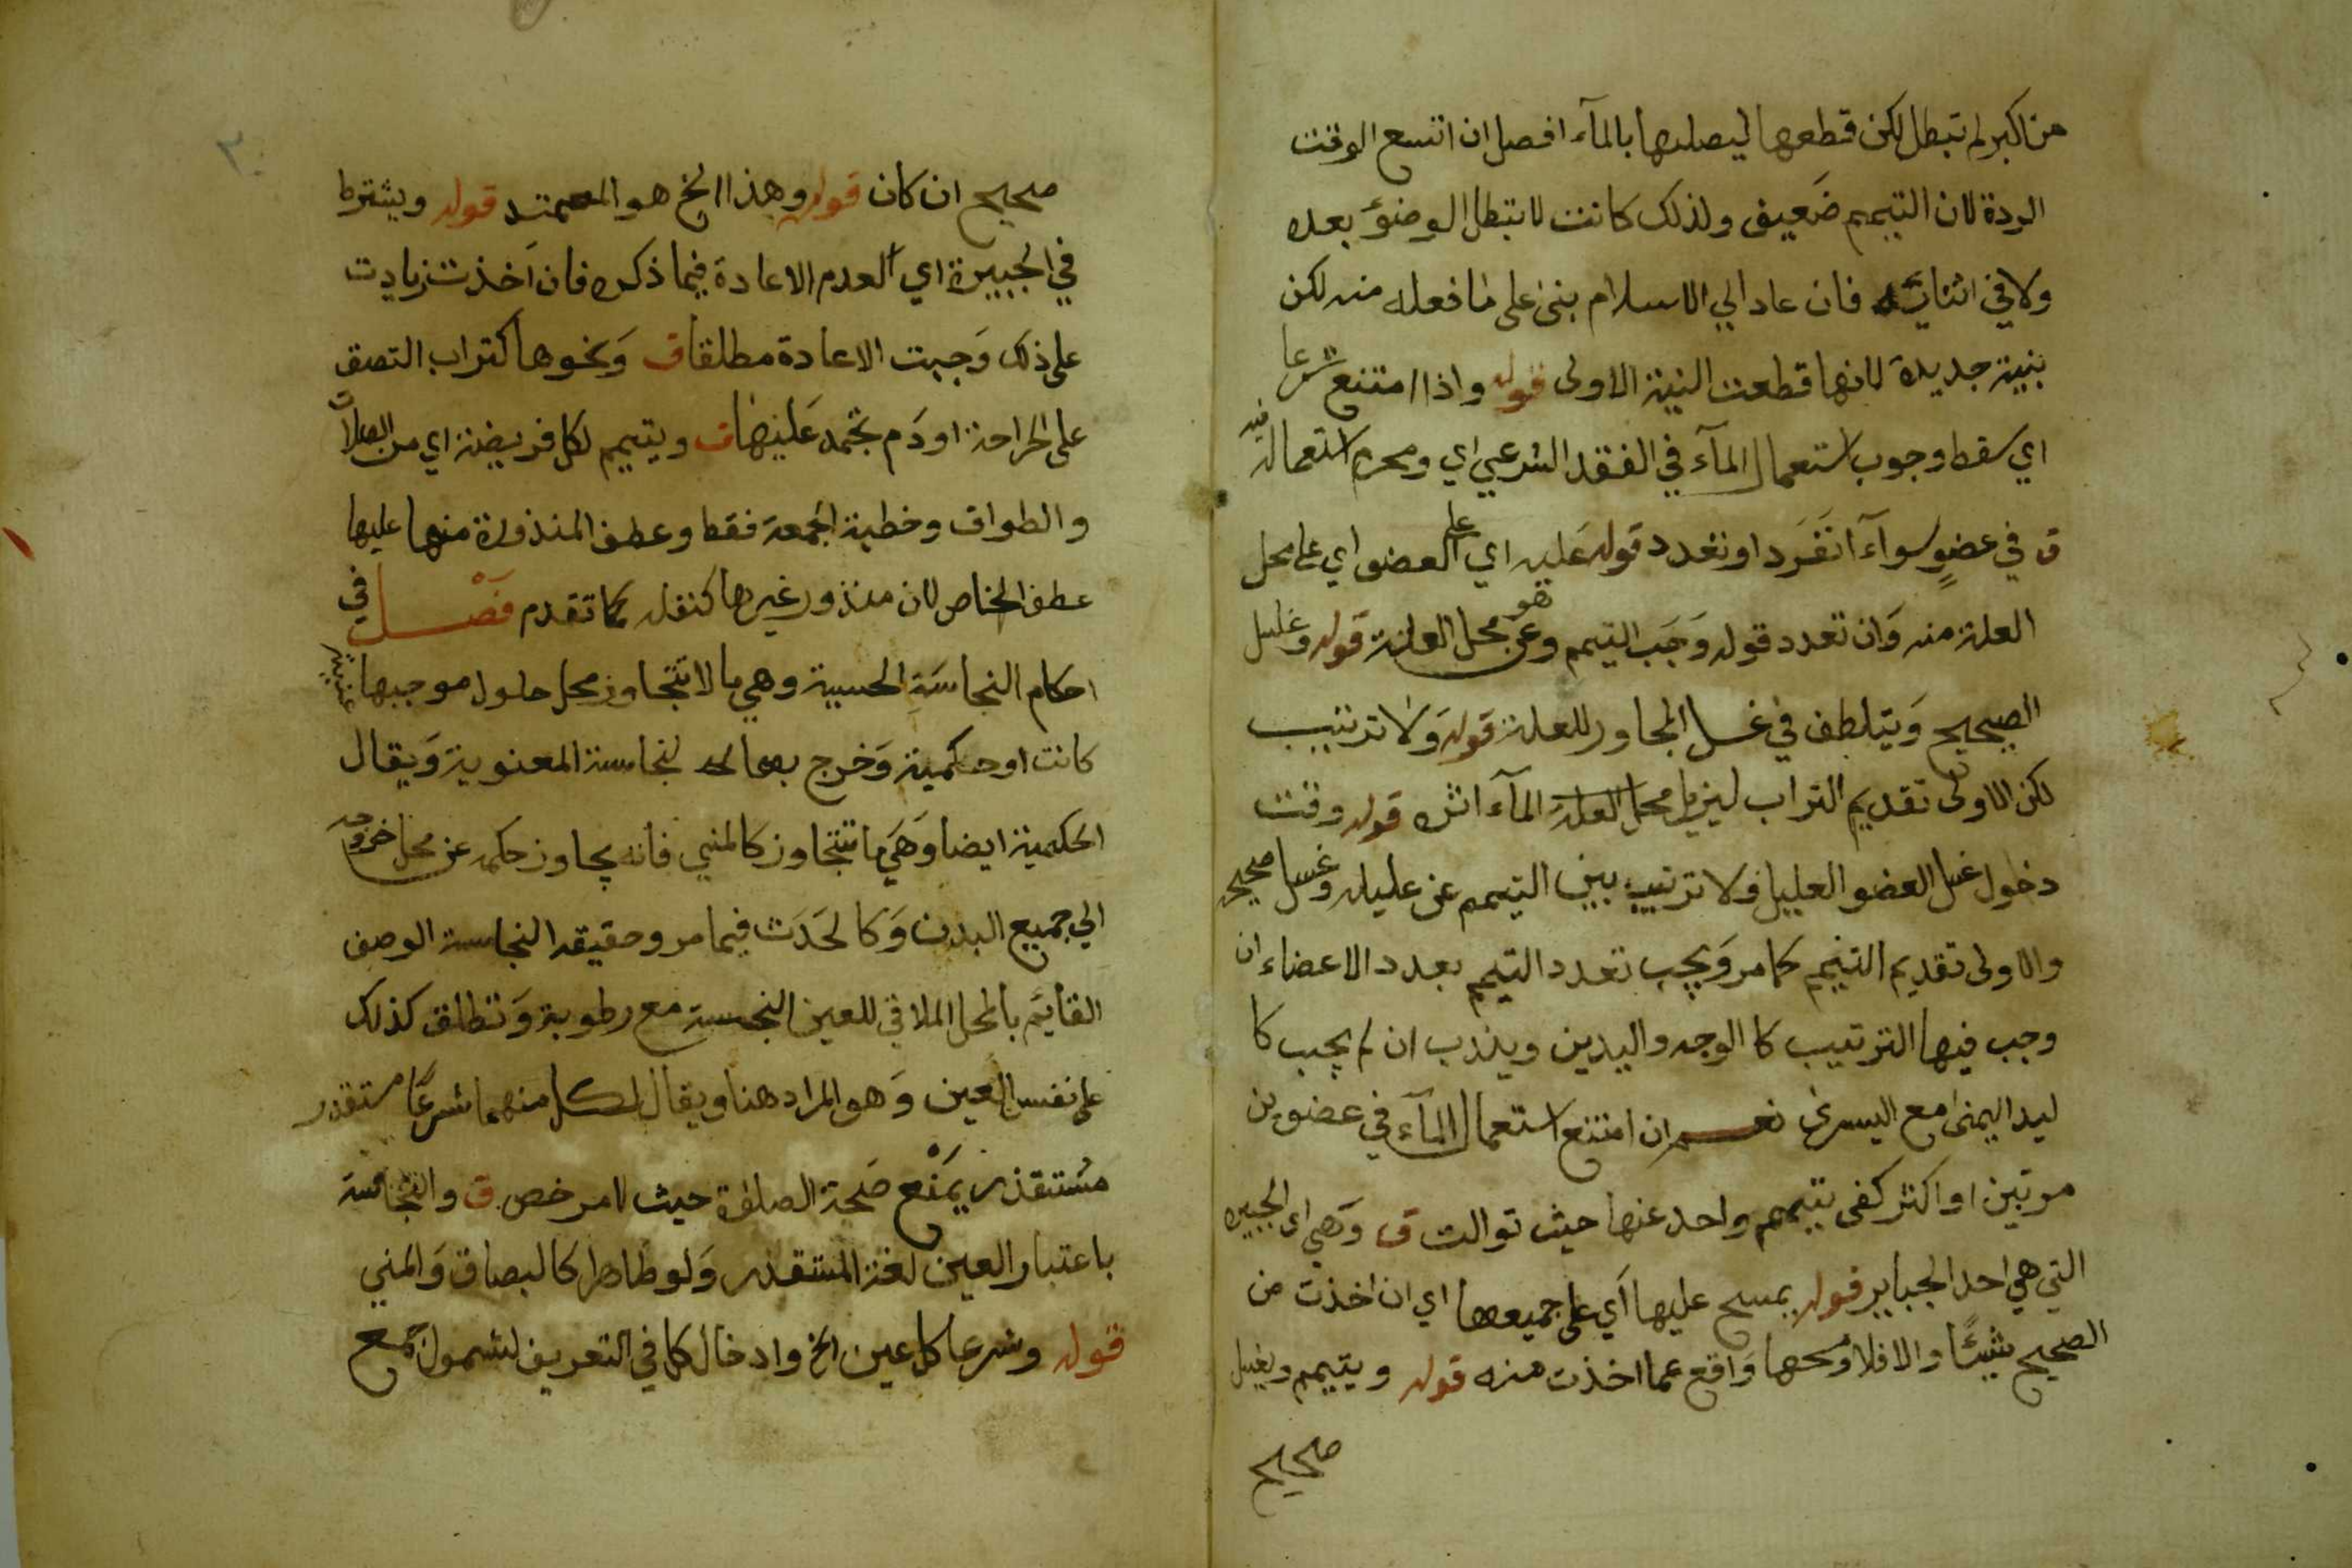 من اكبر لم تبطل لكن قطعها ليصليها بالمآء افضل ان اتسع الوقت
الردة لان التيمم ضعيف ولذلك كانت لا تبطل الوضوء بعده
ولا في اثنايه فان عاد الي الاسلام بنى على ما فعله منه لكن
بنية جديدة لانها قطعت النية الاولى قوله واذا امتنع شرعا
اي سقط وجوب استعمال المآء في الفقد الشرعي اي ومحرم استعماله فيه
ق في عضوٍ سوآء انفَرَد او تعدد قوله عَليه اي على العضو اي على محل
العلة منه وَان تعدد قوله وَجَب التيمم وهو عن محل العلة قوله وغسل
الصحيح وَيتلطف في غسل المجاور للعلة قوله وَلا ترتيب
لكن الاولى تقديم التراب ليزيل محل العلة المآء اثره قوله وقت
دخول غسل العضو العليل ولا ترتيب بين التيمم عن عليله وغسل صحيحه
والاولى تقديم التيمم كما مر وَيجب تعدد التيمم بعدد الاعضاء ان
وجب فيها الترتيب كا الوجه واليدين ويندب ان لم يجب كا
ليد اليمنى مع اليسرى نعم ان امتنع استعمال المآء في عضوين
مرتبين او اكثر كفى تيمم واحد عنها حيث توالت ق وَهي اى الجبيره
التي هي احد الجباير قوله يمسح عليها اَي على جميعها اي ان اخذت من
الصحيح شيئًا والا فلا ومسحها وَاقع عما اخذت منه قوله ويتيمم ويغسل
صحيح
٣٠
صحيح ان كان قوله وهذا الخ هو المعمتد قوله ويشترط
في الجبيرة اي لعدم الاعادة فيما ذكره فان اَخذت زيادت
على ذلك وَجبت الاعادة مطلقا ق وَنحوها كتراب التصق
على الجراحة او دَم تجمد عَليها ق ويتيمم لكل فريضة اي من الصلاة
والطواف وخطبة الجمعة فقط وعطف المنذورة منها عليها
عطف الخاص لان منذور غيرها كنفله كما تقدم فَصْل في
احكام النجاسَة الحسية وهي ما لا تتجاوز محل حلول موجبها
كانت او حكمية وَخرج بها النجاسة المعنوية وَيقال
الحكمية ايضا وَهَي ما تتجاوز كالمني فانه يجاوز حكمه عن محل خروجه
الي جميع البدن وَكالحَدَث فيما مر وحقيقه النجاسة الوصف
القايَم بالمحل الملاقي للعين النجسة مع رطوبة وَتطلق كذلك
على نفس العين وَهو المراد هنا ويقال لكل منهما شرعًا مستقذر
مسُتقذر يَمنْع صَحة الصلاة حيث لا مرخص ق والنجاسة
باعتبار العين لغة المستقذر وَلو طاهرا كالبصاق وَالمني
قوله وشرعا كل عين الخ وادخال كل في التعريف لشموله مع